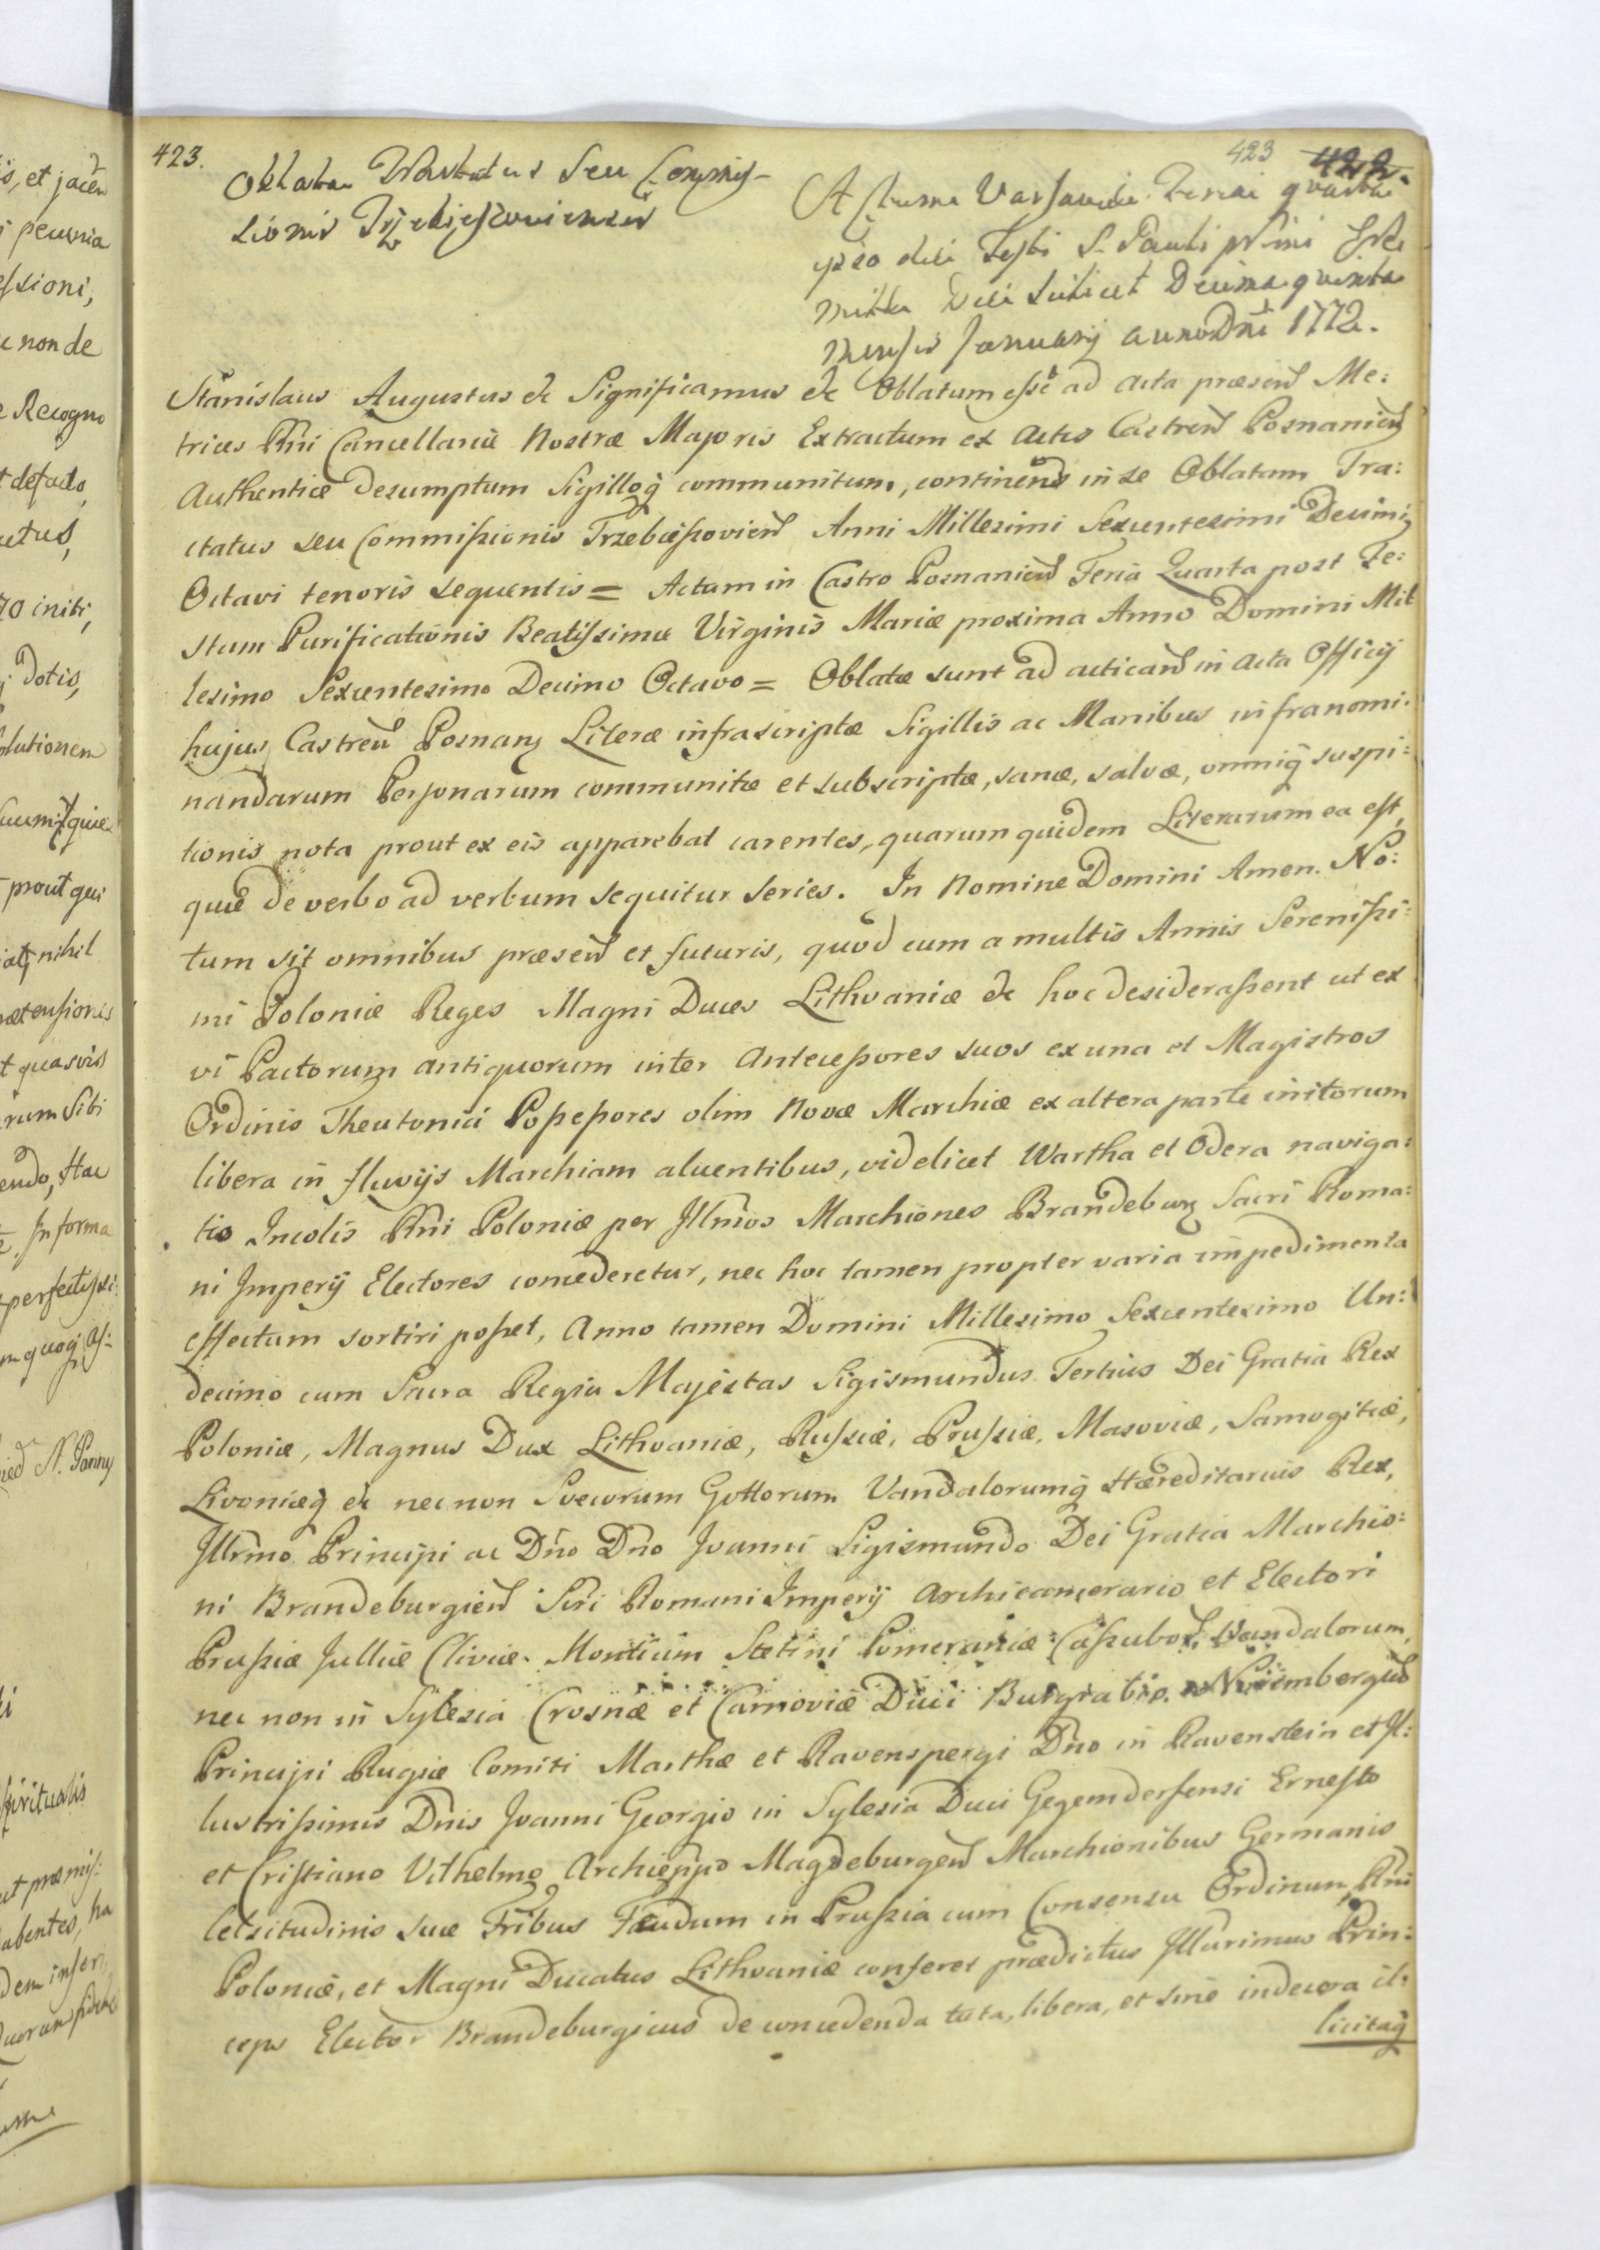 423.
423 422.
Oblata Tractatus Seu Commis-
sionis Trzebieszoviensis
Actum Varsaviae Feria quarta
ipso die Festi S. Pauli primi Ere
mittae Die scilicet Decima quinta
Mensis Januarij anno Dni 1772.
Stanislaus Augustus &c Significamus &c Oblatum esse ad Acta præsen Me:
trices Rni Cancellariæ Nostræ Majoris Extractum ex Actis Castren Posnanien
Authenticæ desumptum Sigilloq communitum, continens in se Oblatam Tra:
ctatus seu Commissionis Trzebieszovien Anni Millesimi Sexcentesimi Decimi
Octavi tenoris sequentis = Actum in Castro Posnanien Feria Quarta post Fe:
stum Purificationis Beatissimæ Virginis Mariæ proxima Anno Domini Mil
lesimo Sexcentesimo Decimo Octavo = Oblatæ sunt ad acticand in Acta Officij
hujus Castren Posnan Literæ infrascriptæ Sigillis ac Manibus infranomi:
nandarum Personarum communitæ et subscriptæ, sanæ, salvæ, omniq suspi:
tionis nota prout ex eis apparebat carentes, quarum quidem Literarum ea est,
quæ de verbo ad verbum sequitur series. In Nomine Domini Amen. No:
tum sit omnibus præsen et futuris, quod cum a multis Annis Serenissi:
mi Poloniæ Reges Magni Duces Lithvaniæ &c hoc desiderassent ut ex
vi Pactorum antiquorum inter Antecessores suos ex una et Magistros
Ordinis Theutonici Possessores olim Novæ Marchiæ ex altera parte initorum
libera in fluvijs Marchiam aluentibus, videlicet Wartha et Odera naviga:
tio Incolis Rni Poloniæ per Illmos Marchiones Brandeburg Sacri Roma:
ni Imperij Electores concederetur, nec hoc tamen propter varia impedimenta
effectum sortiri posset, Anno tamen Domini Millesimo Sexcentesimo Un:
decimo cum Sacra Regia Majestas Sigismundus Tertius Dei Gratia Rex
Poloniæ, Magnus Dux Lithvaniæ, Russiæ, Prussiæ, Masoviæ, Samogitiæ,
Livoniæq &c nec non Svecorum Gottorum Vandalorumq Hæreditarius Rex,
Illrmo Principi ac Dno Dno Joanni Sigismundo Dei Gratia Marchio:
ni Brandeburgien Sri Romani Imperij Archicamerario et Electori
Prussiæ Julliæ Cliviæ Montium Stetini Pomeraniæ Cassubor Wandalorum,
nec non in Sylesia Crosnæ et Carnoviæ Duci Burgrabio Nurembergen
Principi Rugiæ Comiti Marthæ et Ravenspergi Dno in Ravenstein et Il:
lustrissimis Dnis Joanni Georgio in Sylesia Duci Gegemdersensi Ernesto
et Cristiano Vilhelmo Archieppo Magdeburgen Marchionibus Germanis
Celsitudinis suæ Fribus Fæudum in Prussia cum Consensu Ordinum Rni
Poloniæ, et Magni Ducatus Lithvaniæ conferet prædictus Illurimus Prin:
ceps Elector Brandeburgicus de concedenda tuta, libera, et sine indecora il:
licitaq